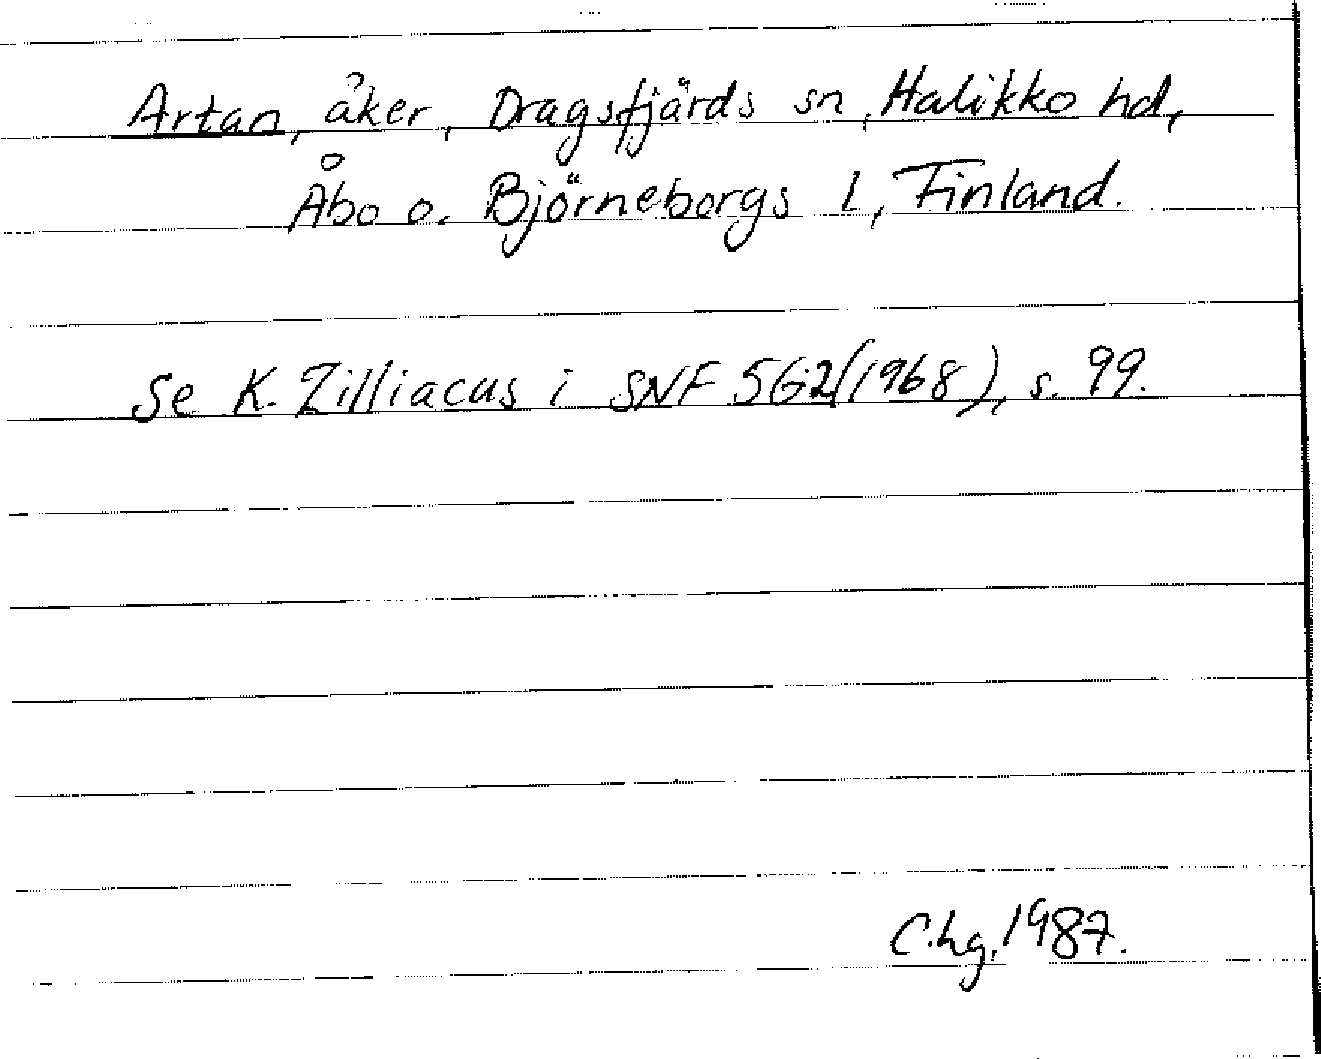 Artan, åker, Dragsfjärds sn, Halikko hd,
Åbo o. Björneborgs l, Finland.
Se K. Zilliacus i SNF 562(1968), s. 99.
C.hg. 1987.